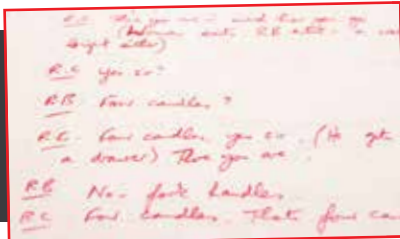 R.C. There you are - mind how you go.
(Woman exits. R.B. enters - a
R.C. Yes sir?
R.B. Four candles?
R.C. Four candles, yes sir. (He gets
a drawer) There you are.
R.B. No - fork handles.
R.C. Four candles. That's four ca